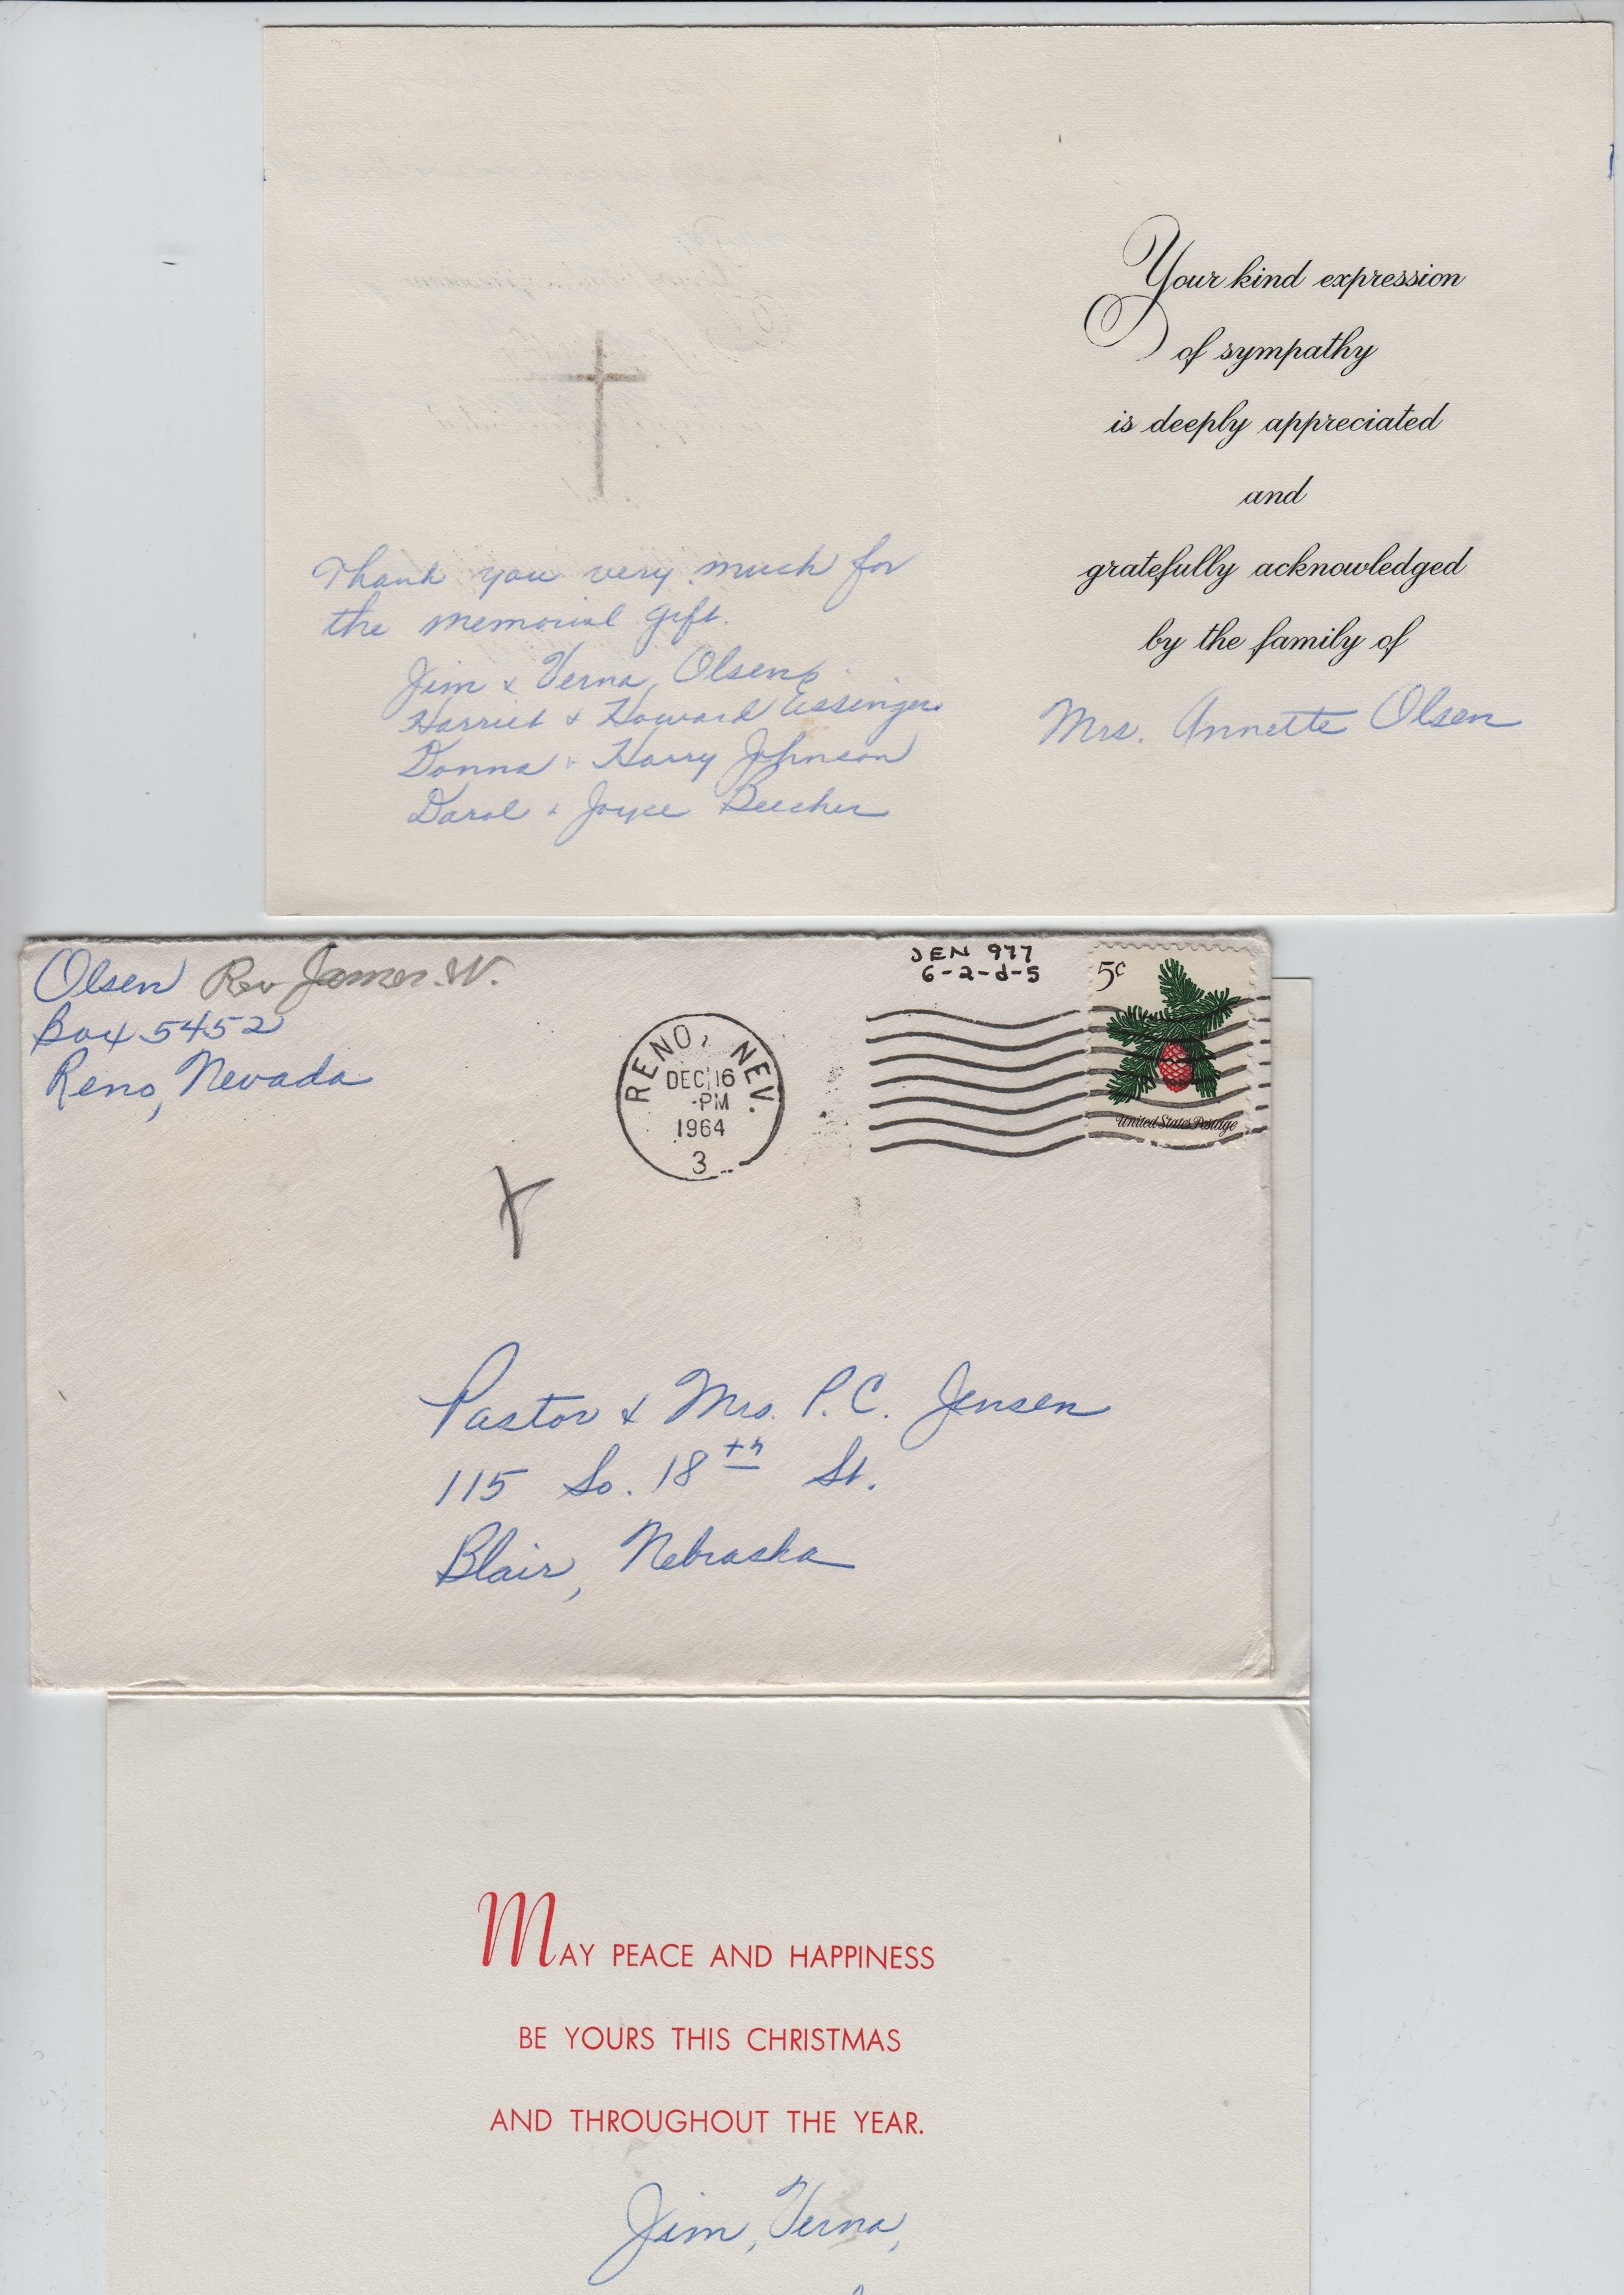 Your kind expression
of sympathy
is deeply appreciated
and
gratefully acknowledged
by the family of
Mrs. Annette Olsen
Thank you very much for
the memorial gift.
Jim & Verna Olsen
Harriet & Howard Essinger
Donna & Harry Johnson
Darol & Joyce Beecher
Olsen Rev James W.
Box 5452
Reno, Nevada
JEN 977
6-2-d-5
RENO, NEV.
DEC 16
-PM
1964
3
5c
United States Postage
Pastor & Mrs. P. C. Jensen
115 So. 18th St.
Blair, Nebraska
MAY PEACE AND HAPPINESS
BE YOURS THIS CHRISTMAS
AND THROUGHOUT THE YEAR.
Jim, Verna,